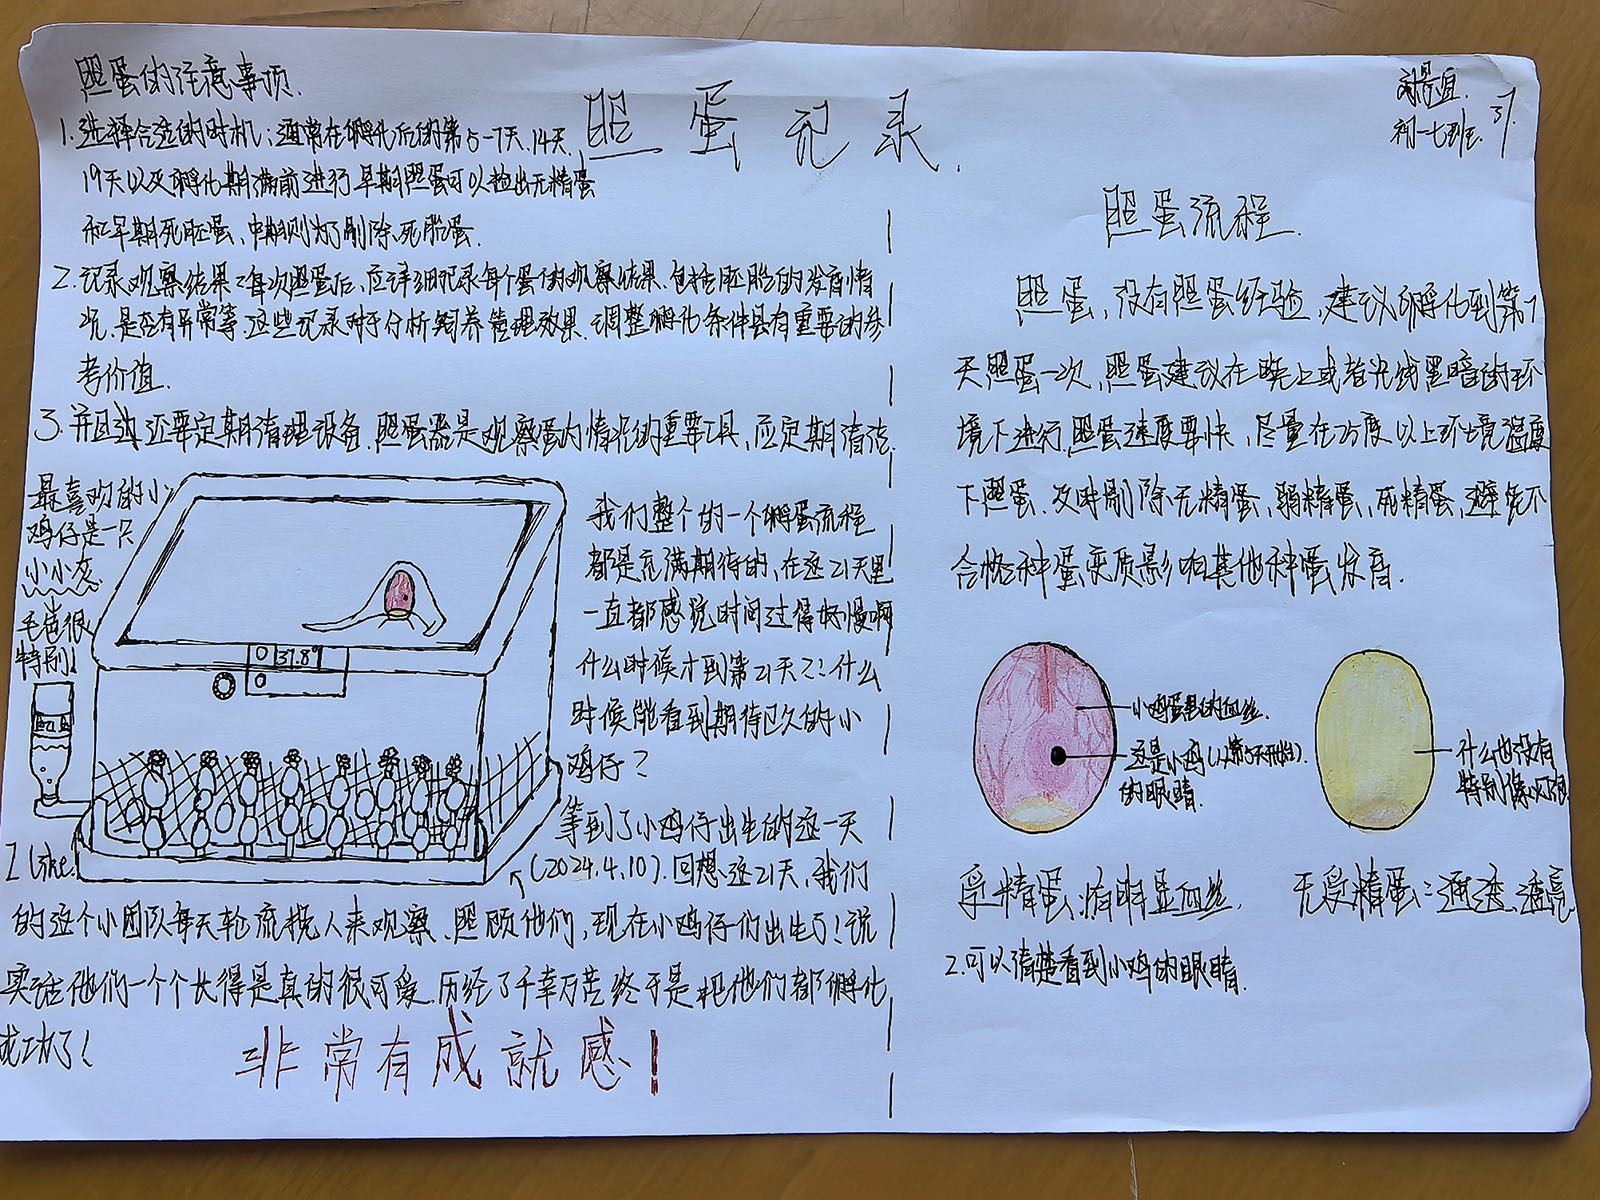 照蛋的注意事项.
1.选择合适的时机:通常在孵化后的第5-7天.14天.
19天以及孵化期满前进行早期照蛋可以捡出无精蛋
和早期死胚蛋、中期则为了剔除死胎蛋.
2.记录观察结果:每次照蛋后,应详细记录每个蛋的观察结果.包括胚胎的发育情
况.是否有异常等.这些记录对于分析饲养管理效果.调整孵化条件具有重要的参
考价值.
3.并且还要定期清理设备.照蛋器是观察蛋内情况的重要工具,应定期清洁.
照蛋记录.
刘昱宜.
初一七班.
37.
最喜欢的小
鸡仔是一只
小小灰
毛色很
特别!
37.8°
I like.
我们整个的一个孵蛋流程
都是充满期待的,在这21天里
一直都感觉时间过得好慢啊
什么时候才到第21天??什么
时候能看到期待已久的小
鸡仔?
等到了小鸡仔出生的这一天
(2024.4.10).回想这21天,我们
的这个小团队每天轮流换人来观察、照顾他们,现在小鸡仔们出生了!说
实话他们一个个长得是真的很可爱.历经了千辛万苦终于是把他们都孵化
成功了!
非常有成就感!
照蛋流程.
照蛋,没有照蛋经验,建议孵化到第7
天照蛋一次,照蛋建议在晚上或者光线黑暗的环
境下进行.照蛋速度要快,尽量在25度以上环境温度
下照蛋.及时剔除无精蛋,弱精蛋,死精蛋,避免不
合格种蛋变质影响其他种蛋发育.
小鸡蛋里的血丝.
这是小鸡(从第5天开始).
的眼睛.
什么也没有
特别像
受精蛋:有明显血丝.
无受精蛋:通透、透亮
2.可以清楚看到小鸡的眼睛.